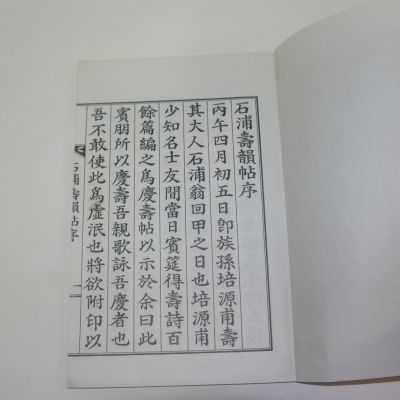 石浦壽韻帖序
丙午四月初五日卽族孫培源甫壽
其大人石浦翁回甲之日也培源甫
少知名士友間當日賓筵得壽詩百
餘篇編之爲慶壽帖以示於余曰此
賓朋所以慶壽吾親歌詠吾慶者也
吾不敢使此爲虛泯也將欲附印以
石浦壽韻帖序
一